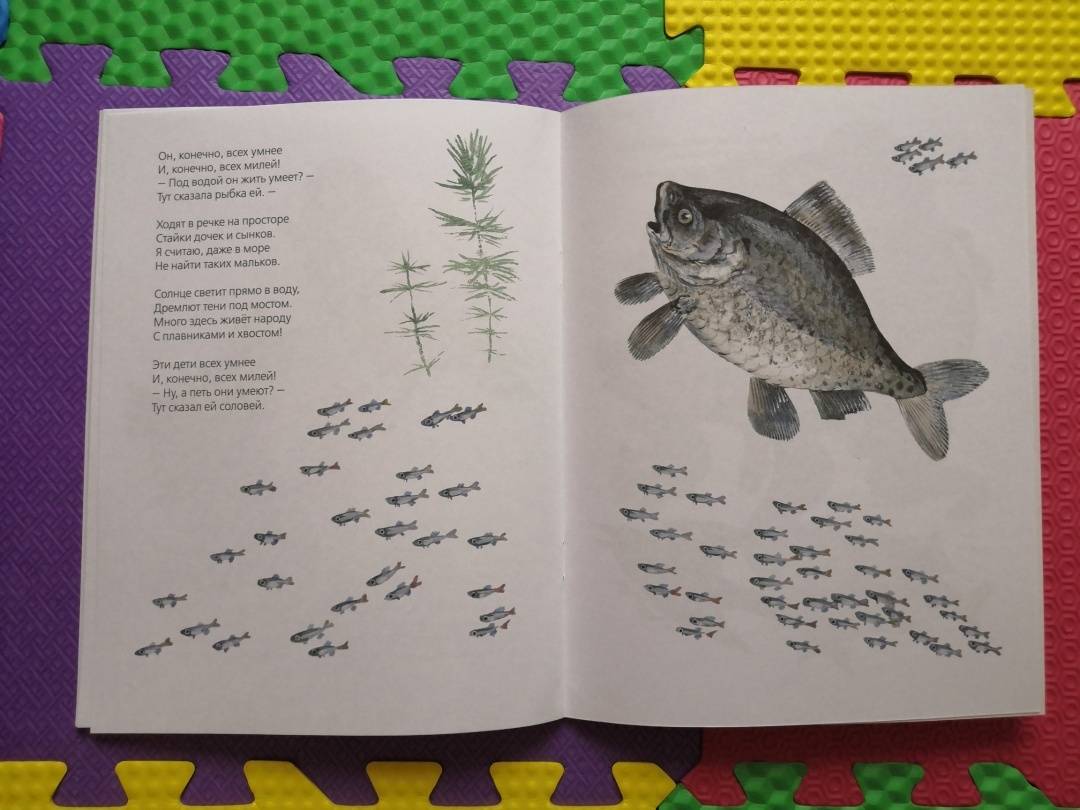 Он, конечно, всех умнее
И, конечно, всех милей!
— Под водой он жить умеет? —
Тут сказала рыбка ей. —
Ходят в речке на просторе
Стайки дочек и сынков.
Я считаю, даже в море
Не найти таких мальков.
Солнце светит прямо в воду,
Дремлют тени под мостом.
Много здесь живёт народу
С плавниками и хвостом!
Эти дети всех умнее
И, конечно, всех милей!
— Ну, а петь они умеют? —
Тут сказал ей соловей.